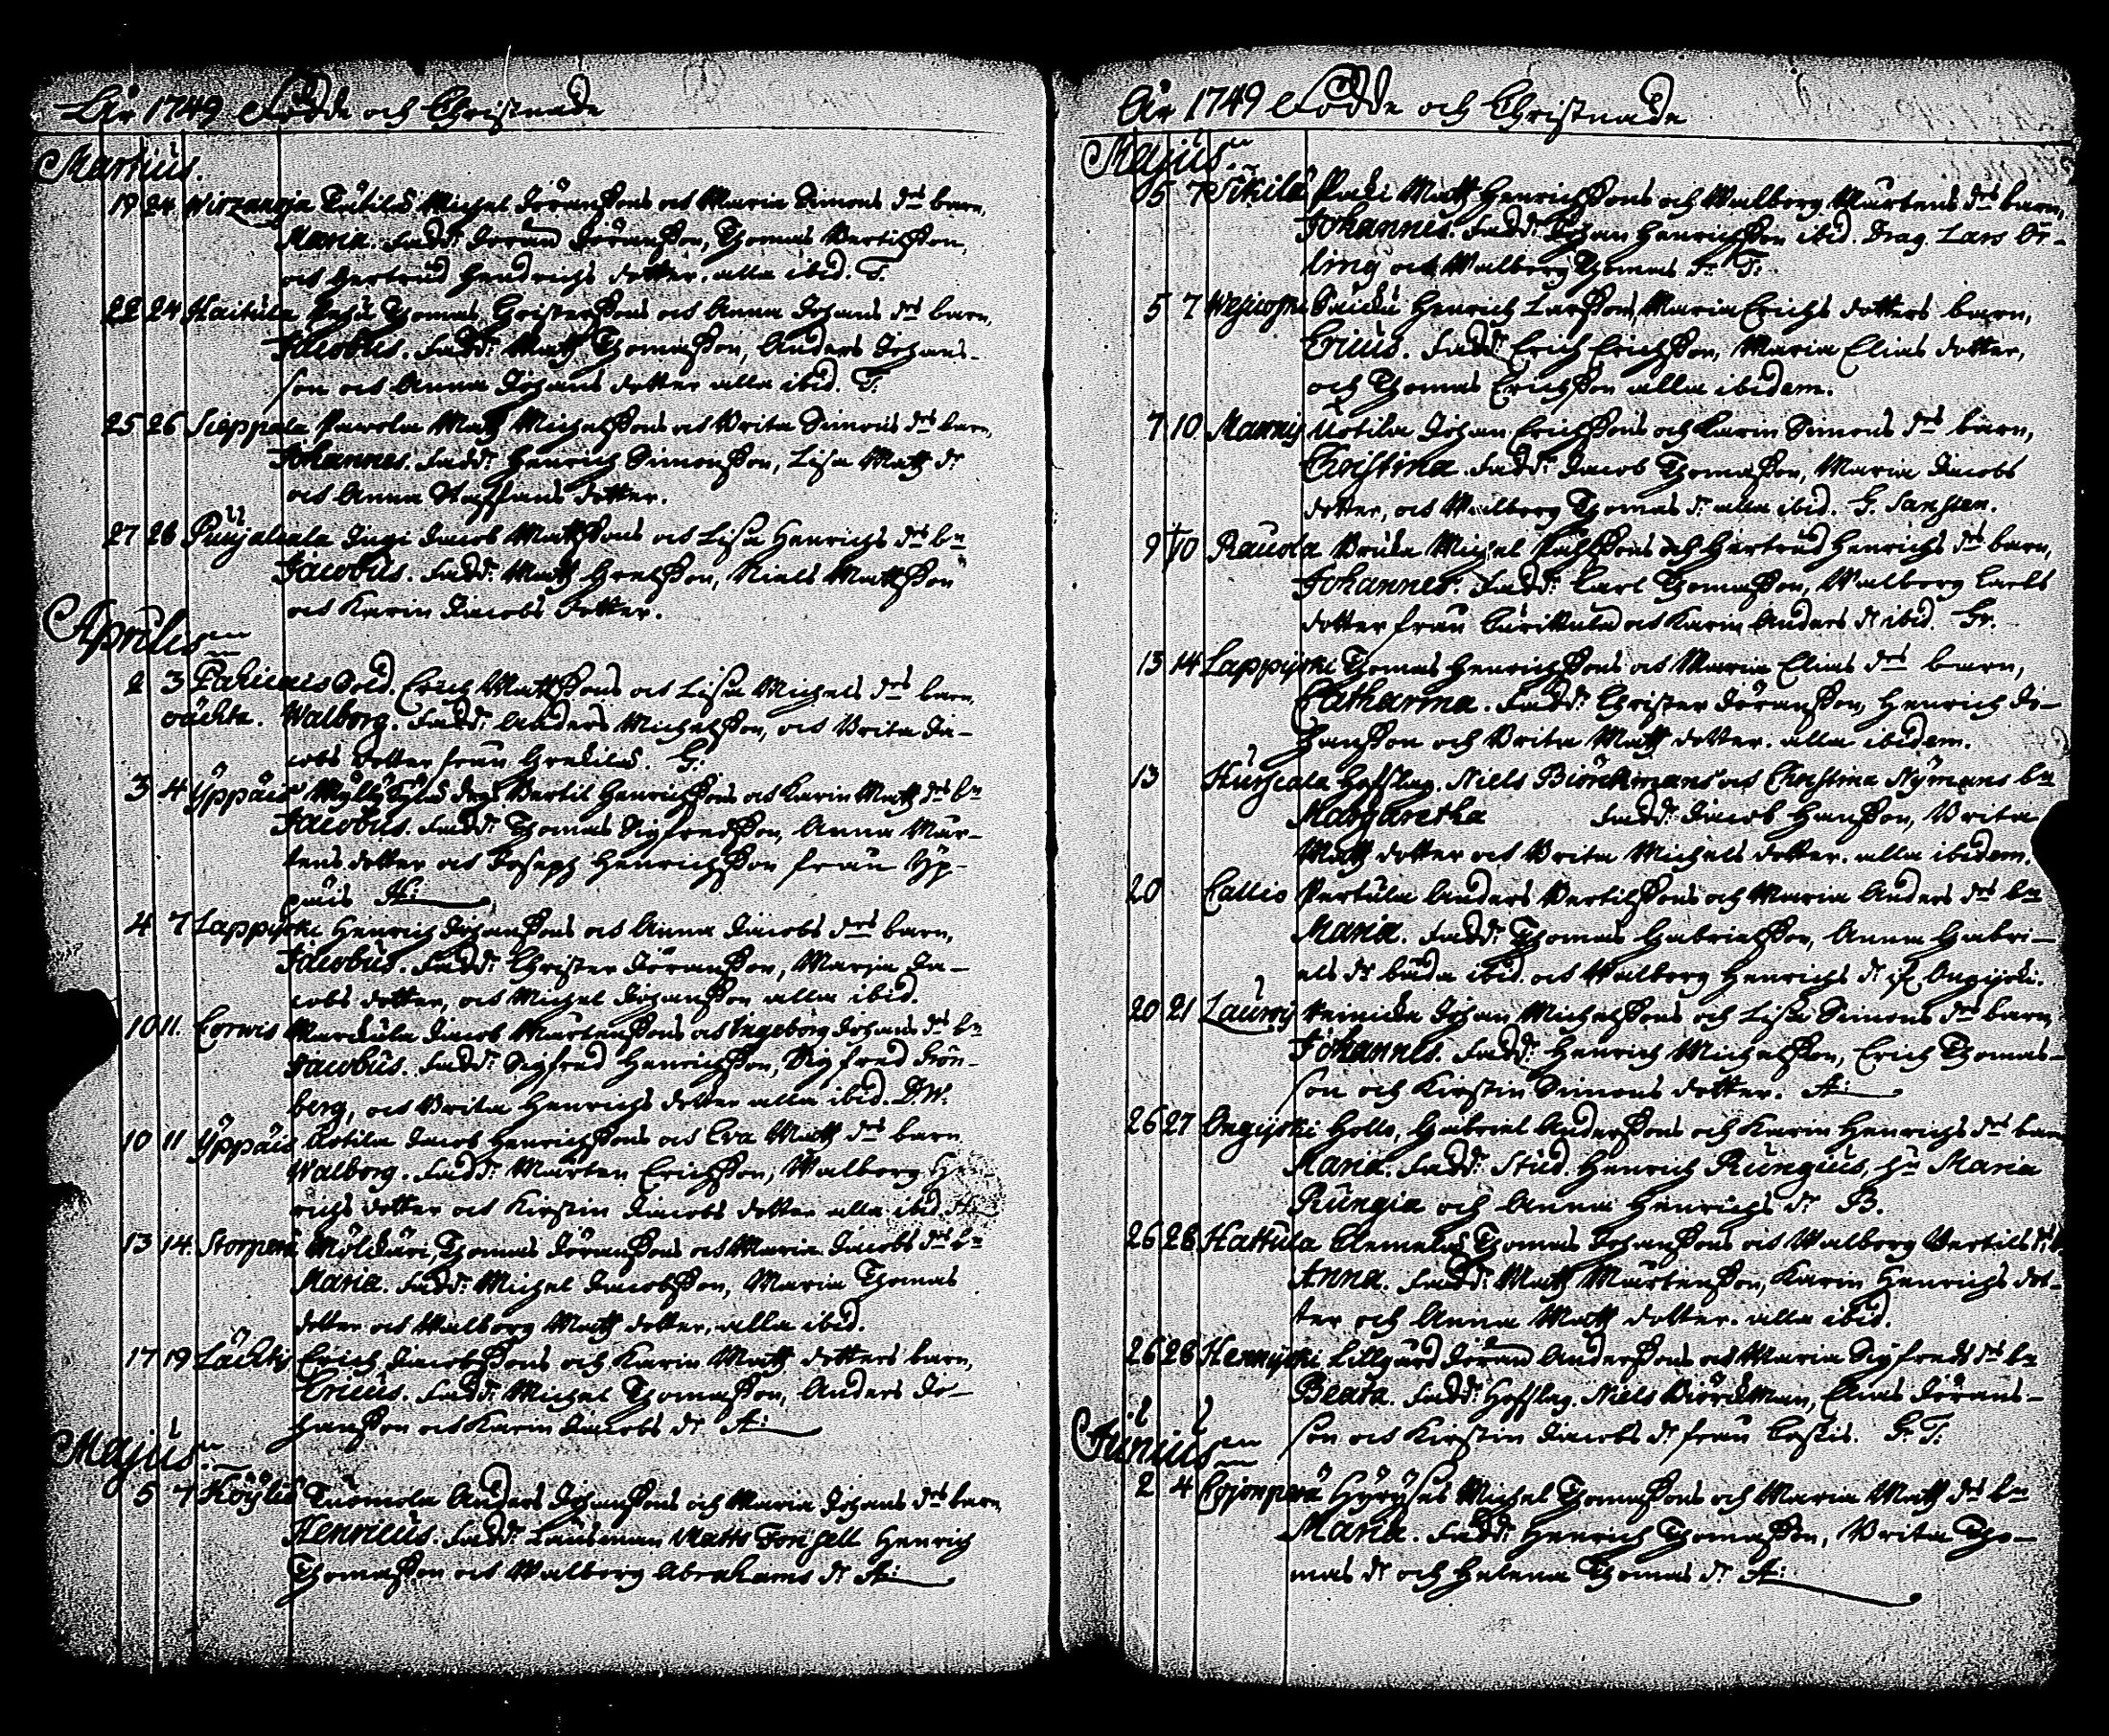 År 1749 Födde och Christnade
Martius.
19 24 Wirzanoja Tutilas Michel Jöransons och Maria Simons drs barn,
Maria. Fadd: Jöran Jöransson, Thomas Bertilsson,
och Gertrud Hendrichs dotter. alla ibid. T.
22 24 Haitula Thomas Christerssons och Anna Johans drs barn,
Jacobus. Fadd: Matts Thomasson, Anders Johans-
son och Anna Johans dotter alla ibid. T.
25 26 Sieppala Pawola Matts Michelssons och Brita Simons drs barn,
Johannes. Fadd: Henrich Simonsson, Lisa Matts dr
och Anna Staffans dotter.
27 28 Puujalcala Jacob Mattssons och Lisa Henrichs drs bn
Jacobus. Fadd: Matts Grelsson, Niels Mattsson
och Karin Jacobs dotter.
Aprilis
2 3 Sold. Erich Mattssons och Lisa Michels drs barn,
Walborg. Fadd: Anders Michelsson, och Brita Ja-
cobs dotter från Grekilas. G:
3 4 Yppäis Myllykylä Bertil Henrichssons och Karin Matts drs bn
Jacobus. Fadd: Thomas Sigfredsson, Anna Mår-
tens dotter och Joseph Henrichsson från Yp-
päis A:
4 7 Lappijoki Henrich Johanssons och Anna Jacobs drs barn,
Jacobus. Fadd: Christer Jöransson, Maria Ja-
cobs dotter, och Michel Johansson alla ibid.
10 11. Corwis Marckula Jacob Mårtenssons och Ingeborg Johans drs bn
Jacobus. Fadd: Sigfred Henrichsson, Sigfred Grön-
berg, och Brita Henrichs dotter alla ibid. D.W.
10 11 Yppäis Astila Jacob Henrichssons och Eva Matts drs barn
Walborg. Fadd: Mårten Erichsson, Walborg Hen-
richs dotter och Kirstin Jacobs dotter alla ibid.
13 14. Storperä Mölckäri Thomas Jöranssons och Maria Jacobs drs bn
Maria. Fadd: Michel Jacobsson, Maria Thomas
dotter och Walborg Matts dotter, alla ibid.
17 19 Lächtis Erich Jacobssons och Karin Matts dotters barn,
Ericus. Fadd: Michel Thomasson, Anders Jo-
hansson och Karin Jacobs dr A:
Majus.
5 7 Köylis Tuomola Anders Johanssons och Maria Johans drs barn
Henricus. Fadd: Länsman Matts Forssell Henrich
Thomasson och Walborg Abrahams dr A:
År 1749 Födde och Christnade
Majus.
5 7 Sikilä Paki Matts Henrichssons och Walborg Mårtens drs barn,
Johannes. Fadd: Johan Henrichsson ibid. Drag. Lars Er-
ling och Walborg Thomas dr T:
5 7 Henrich Larssons, Maria Erichs dotters barn,
Ericus. Fadd: Erich Erichsson, Maria Elias dotter,
och Thomas Erichsson alla ibidem.
7 10. Mannis Uotila Johan Erichssons och Karin Simons drs barn,
Christina. Fadd: Jacob Thomasson, Maria Jacobs
dotter, och Walborg Thomas dr alla ibid.
9 10 Rauola Michel Påhlssons och Gertrud Henrichs drs barn,
Johannes. Fadd: Carl Thomasson, Walborg Carls
dotter från och Karin Anders dr ibid. Gr.
13 14 Lappijoki Thomas Henrichssons och Maria Elias drs barn,
Catharina. Fadd: Christer Jöransson, Henrich Jo-
hansson och Brita Matts dotter. alla ibidem.
13 Hurscala Hofslag. Niels Biörckmans och Christina Nymans bn
Margaretha Fadd: Jacob Hansson, Brita
Matts dotter och Brita Michels dotter. alla ibidem.
20 Callio Pertula Anders Bertilssons och Maria Anders drs bn
Maria. Fadd: Thomas Gabrielsson, Anna Gabri-
els dr båda ibid. och Walborg Henrichs dr Ongijoki.
20 21 Lauroij Reinicka Johan Michelssons och Lisa Simons drs barn
Johannes. Fadd: Henrich Michelsson, Erich Thomas-
son och Kirstin Simons dotter. A:
26 27 Ongijoki Hollo, Gabriel Anderssons och Karin Henrichs drs barn
Maria. Fadd: Stud. Henrich Rungius, Maria
Rungia och Anna Henrichs dr B.
26 28 Hattula Clemelas Thomas Johanssons och Walborg Bertils drs
Anna. Fadd: Matts Mårtensson, Karin Henrichs dot-
ter och Anna Matts dotter. alla ibid.
26 28 Hennijoki Lillgård Jöran Anderssons och Maria Sigfreds drs bn
Beata. Fadd: Hofslag. Niels Biörckman, Elias Jörans-
son och Kirstin Jacobs dr från G. T.
Junius
2 4 Cojonperä Hyrysas Michel Thomassons och Maria Matts drs bn
Maria. Fadd: Henrich Thomasson, Brita Tho-
mas dr och Helena Thomas dr A: